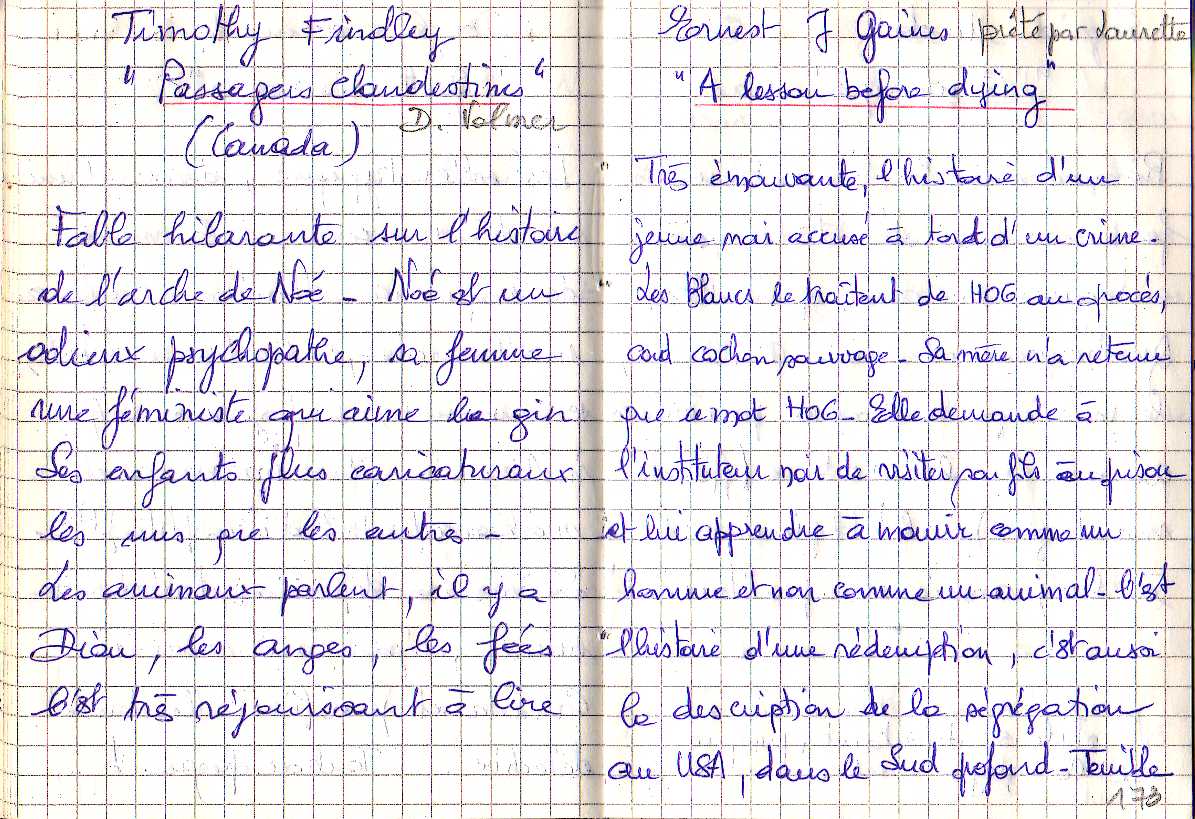 Timothy Findley
"Passagers clandestins"
D. Volmer
(Canada)
Fable hilarante sur l'histoire
de l'arche de Noé - Noé est un
odieux psychopathe, sa femme
une féministe qui aime le gin
Ses enfants plus caricaturaux
les uns que les autres -
Les animaux parlent, il y a
Dieu, les anges, les fées
C'est très réjouissant à lire
Ernest J Gaines prêté par Laurette
"A lesson before dying"
Très émouvante, l'histoire d'un
jeune noir accusé à tord d'un crime.
Les Blancs le traîtent de HOG au procés,
cad cochon sauvage - Sa mère n'a retenu
que ce mot HOG - Elle demande à
l'instituteur noir de visiter son fils en prison
et lui apprendre à mourir comme un
homme et non comme un animal - C'est
l'histoire d'une rédemption, c'est aussi
la description de la ségrégation
au USA, dans le Sud profond - Terrible
173